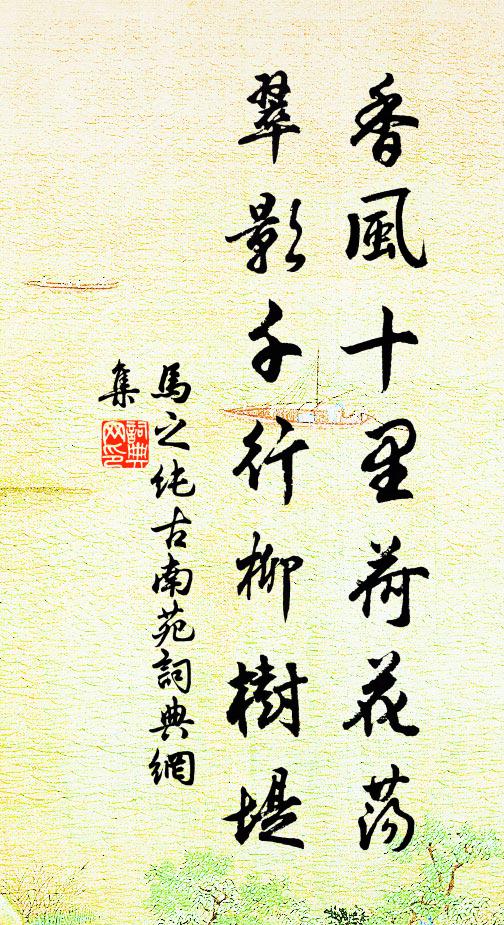 香風十里荷花蕩
翠影千行柳樹堤
馬之純古南苑詞典網
集
詞典網印